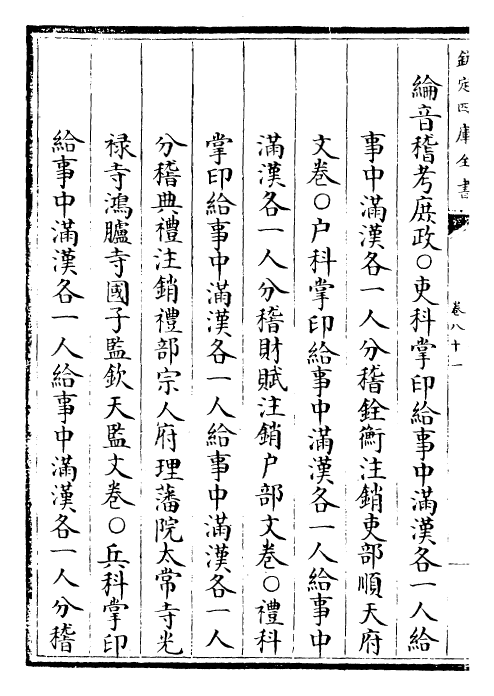 欽定四庫全書
卷八十一
綸音稽考庶政○吏科掌印給事中滿漢各一人給
事中滿漢各一人分稽銓衡注銷吏部順天府
文卷○户科掌印給事中滿漢各一人給事中
滿漢各一人分稽財賦注銷户部文卷○禮科
掌印給事中滿漢各一人給事中滿漢各一人
分稽典禮注銷禮部宗人府理藩院太常寺光
禄寺鴻臚寺國子監欽天監文卷○兵科掌印
給事中滿漢各一人給事中滿漢各一人分稽